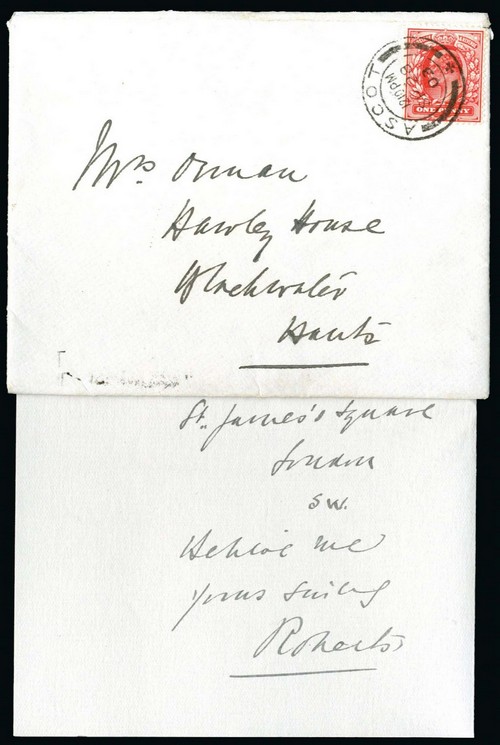 ASCOT
ONE PENNY
Mrs Orman
Hawley House
Blackwater
Hants
St. James's Square
London
SW.
Believe me
Yours
Roberts